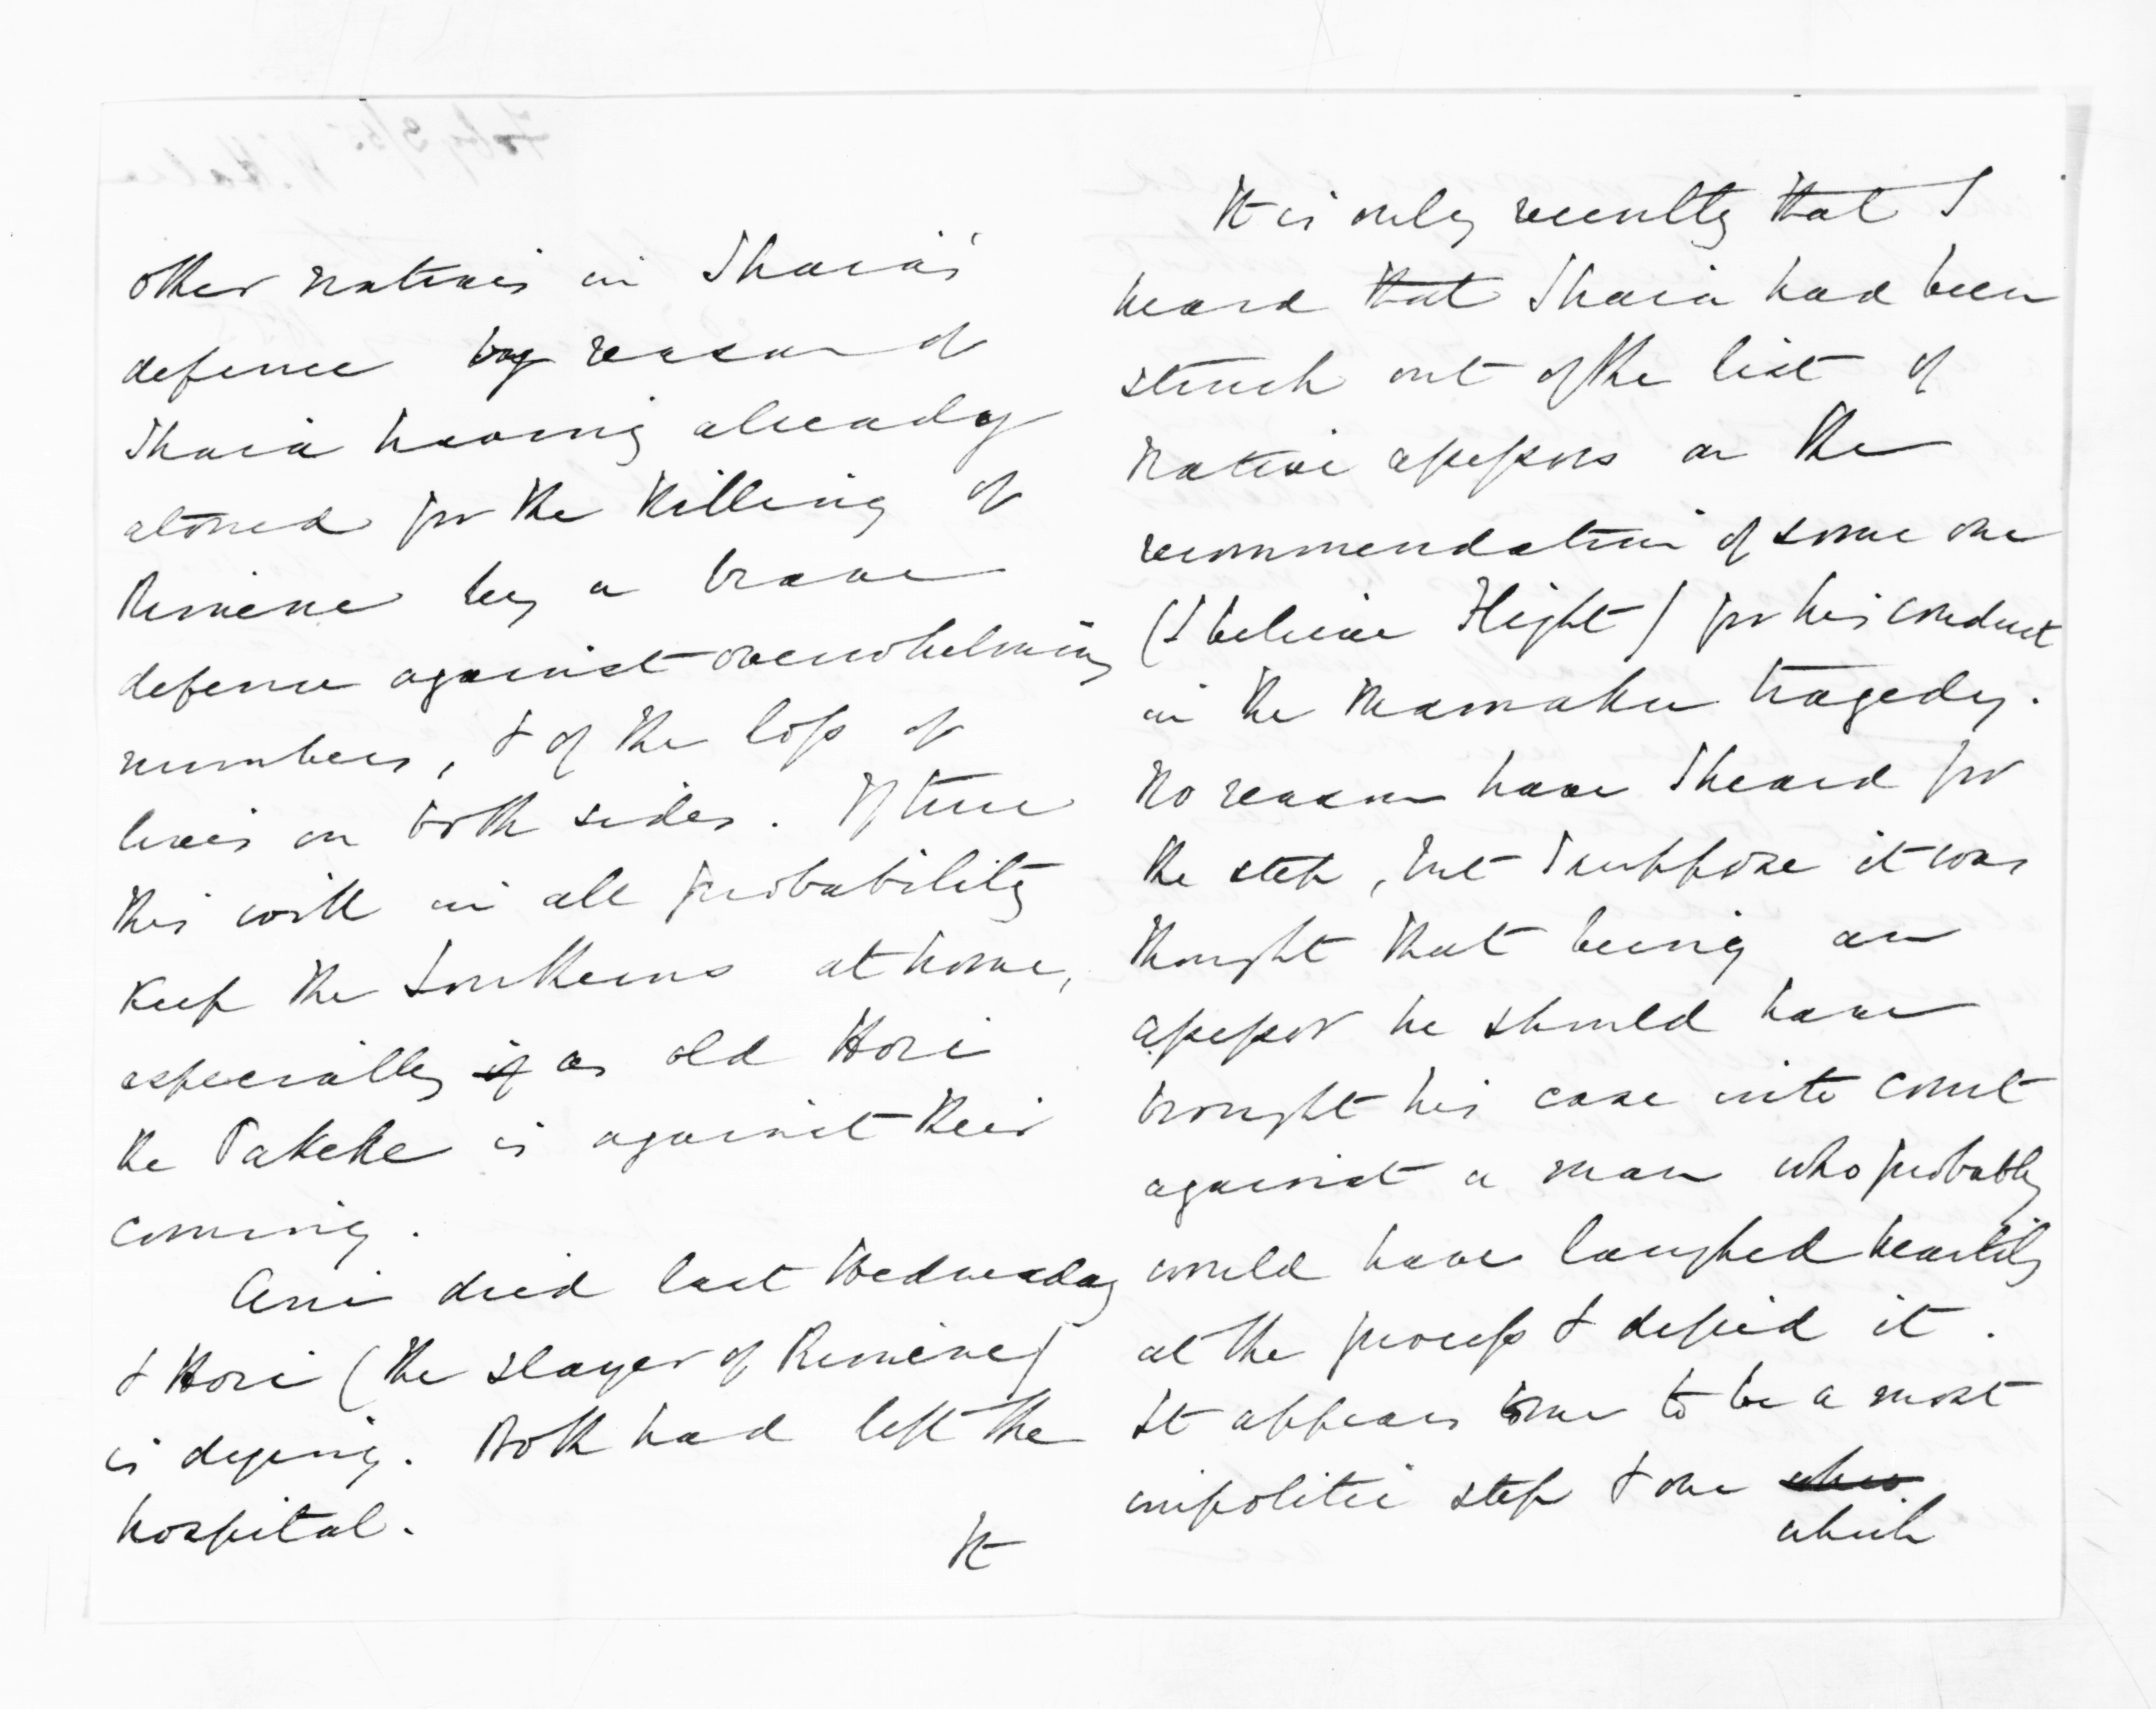 other natives in Ihaia's
defence by reason of
Ihaia having already
atoned for the killing of
Rimene by a brave
defence against overwhelming
numbers, & of the loss of
lives on both sides. If true
this will in all probability
keep the Southerns at home,
especially if as old Hori
the Pakeke is against their
coming.
Ani died last Wednesday
& Hori (the slayer of Rimene)
is dying. Both had left the
hospital.
It
It is only recently that I
heard that Ihaia had been
struck out of the list of
native assessors on the
recommendation of some one
(I believe Flight) for his conduct
in the Kamahu tragedy.
No reason have I heard for
the step, but I suppose it was
thought that being an
assessor he should have
brought his case into court
against a man who probably
would have laughed heartily
at the process & defied it.
It appears to me to be a most
impolitic step & one
which